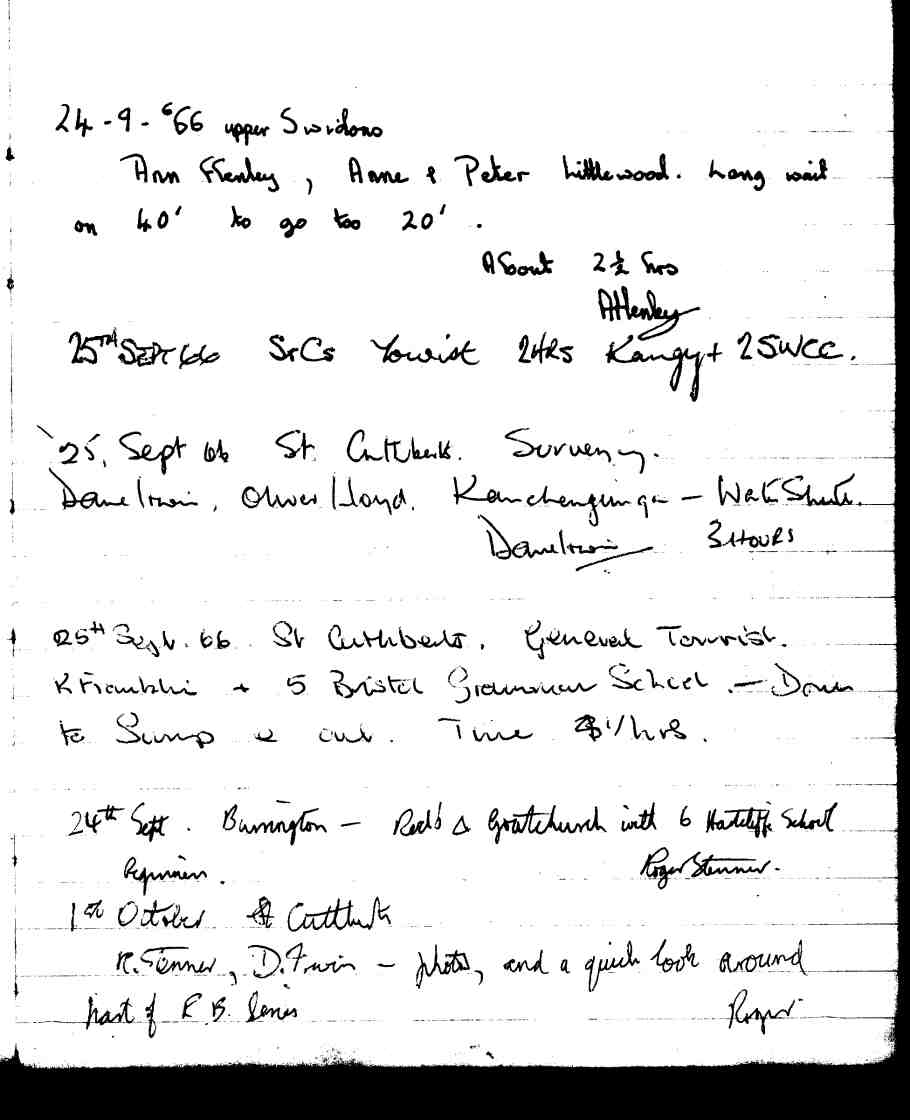 24-9-'66 upper Swildons
Ann Henley, Anne & Peter Littlewood. Long wait
on 40' to go too 20'.
About 2½ hrs
AHenley
25TH SEPT 66 StCs Tourist 2HRS Kangy + 2SWCC.
25, Sept 66 St. Cuthberts. Surveying.
Dave Irwin, Oliver Lloyd. Kanchenjunga -
Dave Irwin 3 HOURS
25th Sept. 66. St Cuthberts. General Tourist.
K Franklin + 5 Bristol Grammar School. - Down
to Sump & out. Time hrs.
24th Sept. Burrington - Read's & Goatchurch with 6 Hartcliffe School
Beginners. Roger Stenner.
1st October St Cuthberts
R. Stenner, D. Irwin - photos, and a quick look around
part of R.B. Series Roger